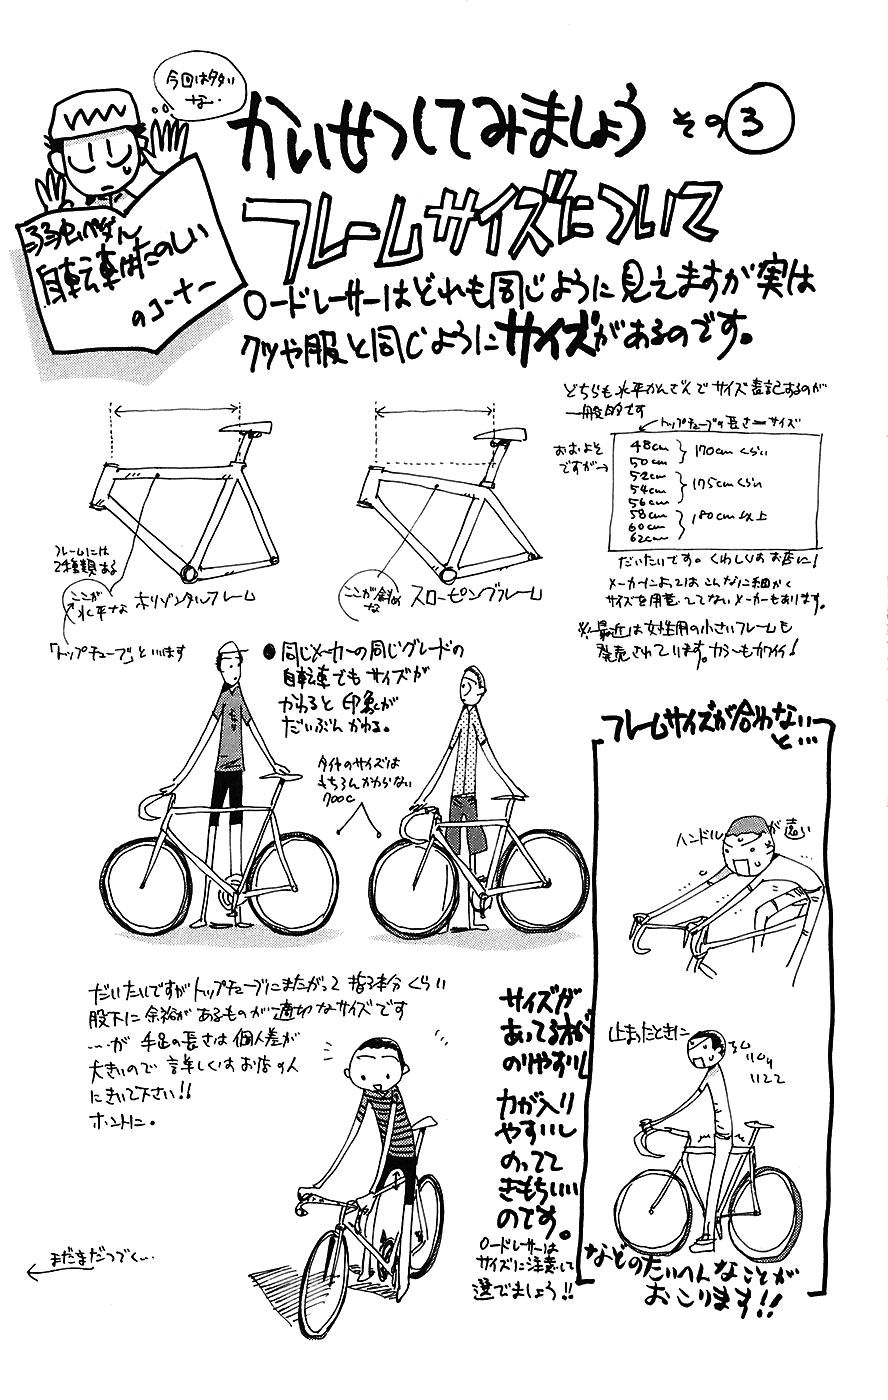 今回は多いな…
かいせつしてみましょう その③
弱虫ペダル
自転車はたのしい
のコーナー
フレームサイズについて
ロードレーサーはどれも同じように見えますが実は
クツや服と同じようにサイズがあるのです。
どちらも水平かんさんでサイズ表記するのが
一般的です
トップチューブの長さ=サイズ
おおよそ
ですが→
48cm
50cm
170cmくらい
52cm
54cm
56cm
175cmくらい
58cm
60cm
62cm
180cm以上
だいたいです。くわしくはお店に!
メーカーによってはこんなに細かく
サイズを用意してないメーカーもあります。
※最近は女性用の小さいフレームも
発売されています。カラーもカワイイ!
フレームには
2種類ある
ここが
水平な
ホリゾンタルフレーム
「トップチューブ」といいます
ここが斜め
な
スローピングフレーム
●同じメーカーの同じグレードの
自転車でもサイズが
かわると印象が
だいぶんかわる。
タイヤのサイズは
もちろんかわらない
700c
フレームサイズが合わない
と…
ハンドルが遠い
止まったときに
などのたいへんなことが
おこります!!
だいたいですがトップチューブにまたがって指3本分くらい
股下に余裕があるものが適切なサイズです
…が 手足の長さは個人差が
大きいので詳しくはお店の人
にきいて下さい!!
ホントに。
サイズが
あってる方が
のりやすいし
力が入り
やすいし
のってて
きもちいい
のです。
ロードレーサーは
サイズに注意して
選びましょう!!
まだまだつづく…